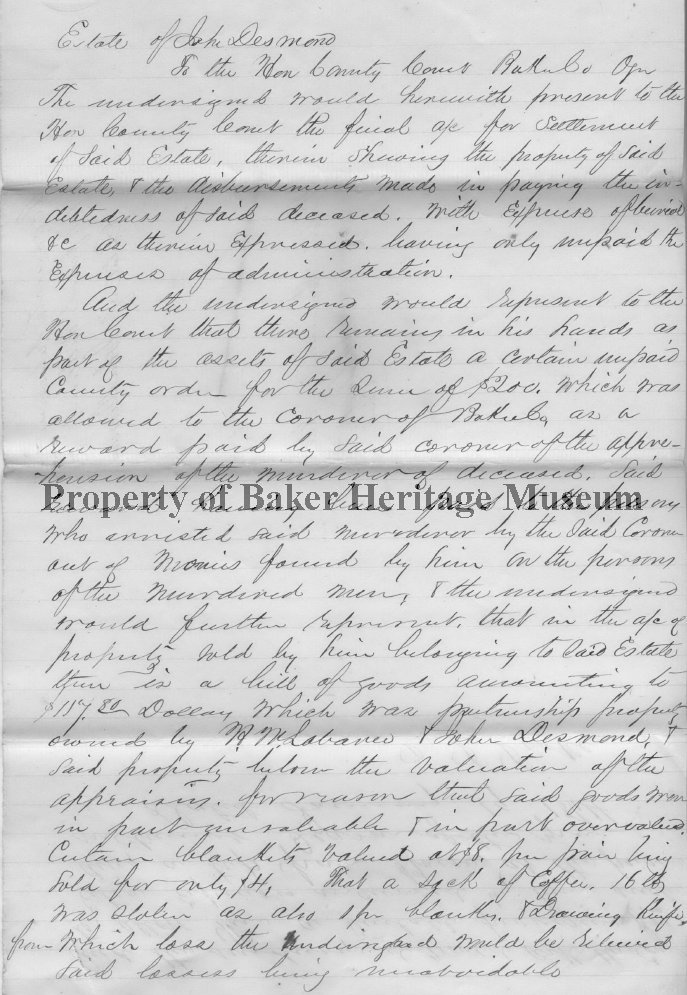 Estate of John Desmond
To the Hon County Court Baker Co Ogn
The undersigned would herewith present to the
Hon County Court the final a/c for Settlement
of Said Estate, therein Showing the property of Said
Estate, & the disbursements made in paying the in-
debtedness of Said deceased. With Expense of burial
&c as therein Expressed. having only unpaid the
Expenses of administration.
And the undersigned would represent to the
Hon Court that there remains in his hands as
part of the assets of Said Estate a certain unpaid
County order for the Sum of $200. which was
allowed to the Coroner of Baker Co as a
reward paid by Said coroner of the appre-
-hension of the murderer of deceased. Said
reward having been paid to the persons
Property of Baker Heritage Museum
who arrested said murderer by the Said Coroner
out of Monies found by him on the persons
of the Murdered men, & the undersigned
would further represent, that in the a/c of
property sold by him belonging to Said Estate
there is a bill of goods amounting to
$117.80 Dollars which was partnership property
owned by & John Desmond, &
Said property below the valuation of the
appraisers. for reason that Said goods were
in part unsaleable & in part overvalued.
Certain blankets valued at $8. per pair being
Sold for only $4, That a sack of Coffee. 16 lbs
was stolen as also 1 pr blankets. & Drawing Knife,
from which loss the undersigned would be relieved
Said lossess being unavoidable